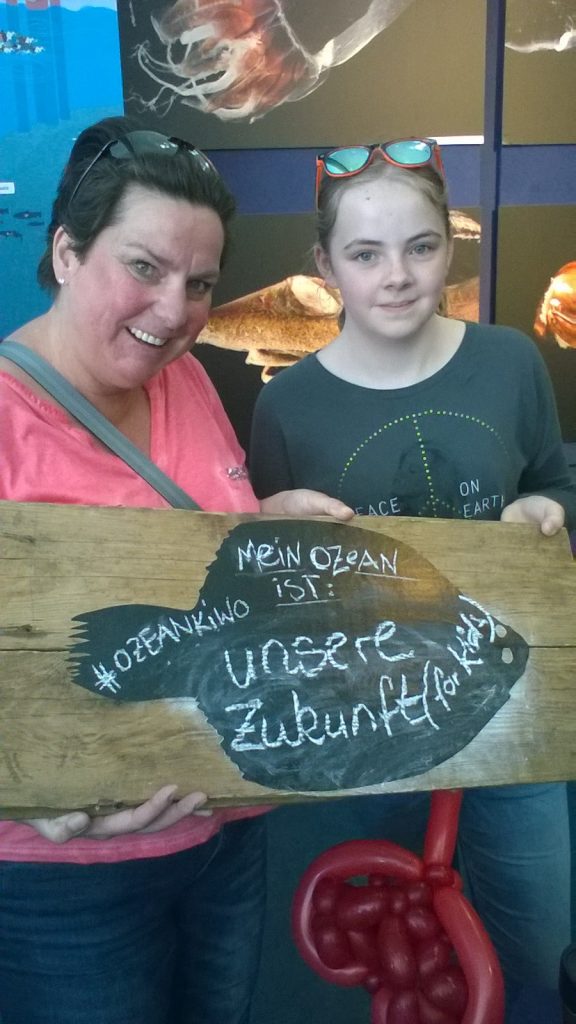 PEACE ON
EARTH
MEIN OZEAN
IST:
#OZEANKIWO
unsere
Zukunft (for Kids)